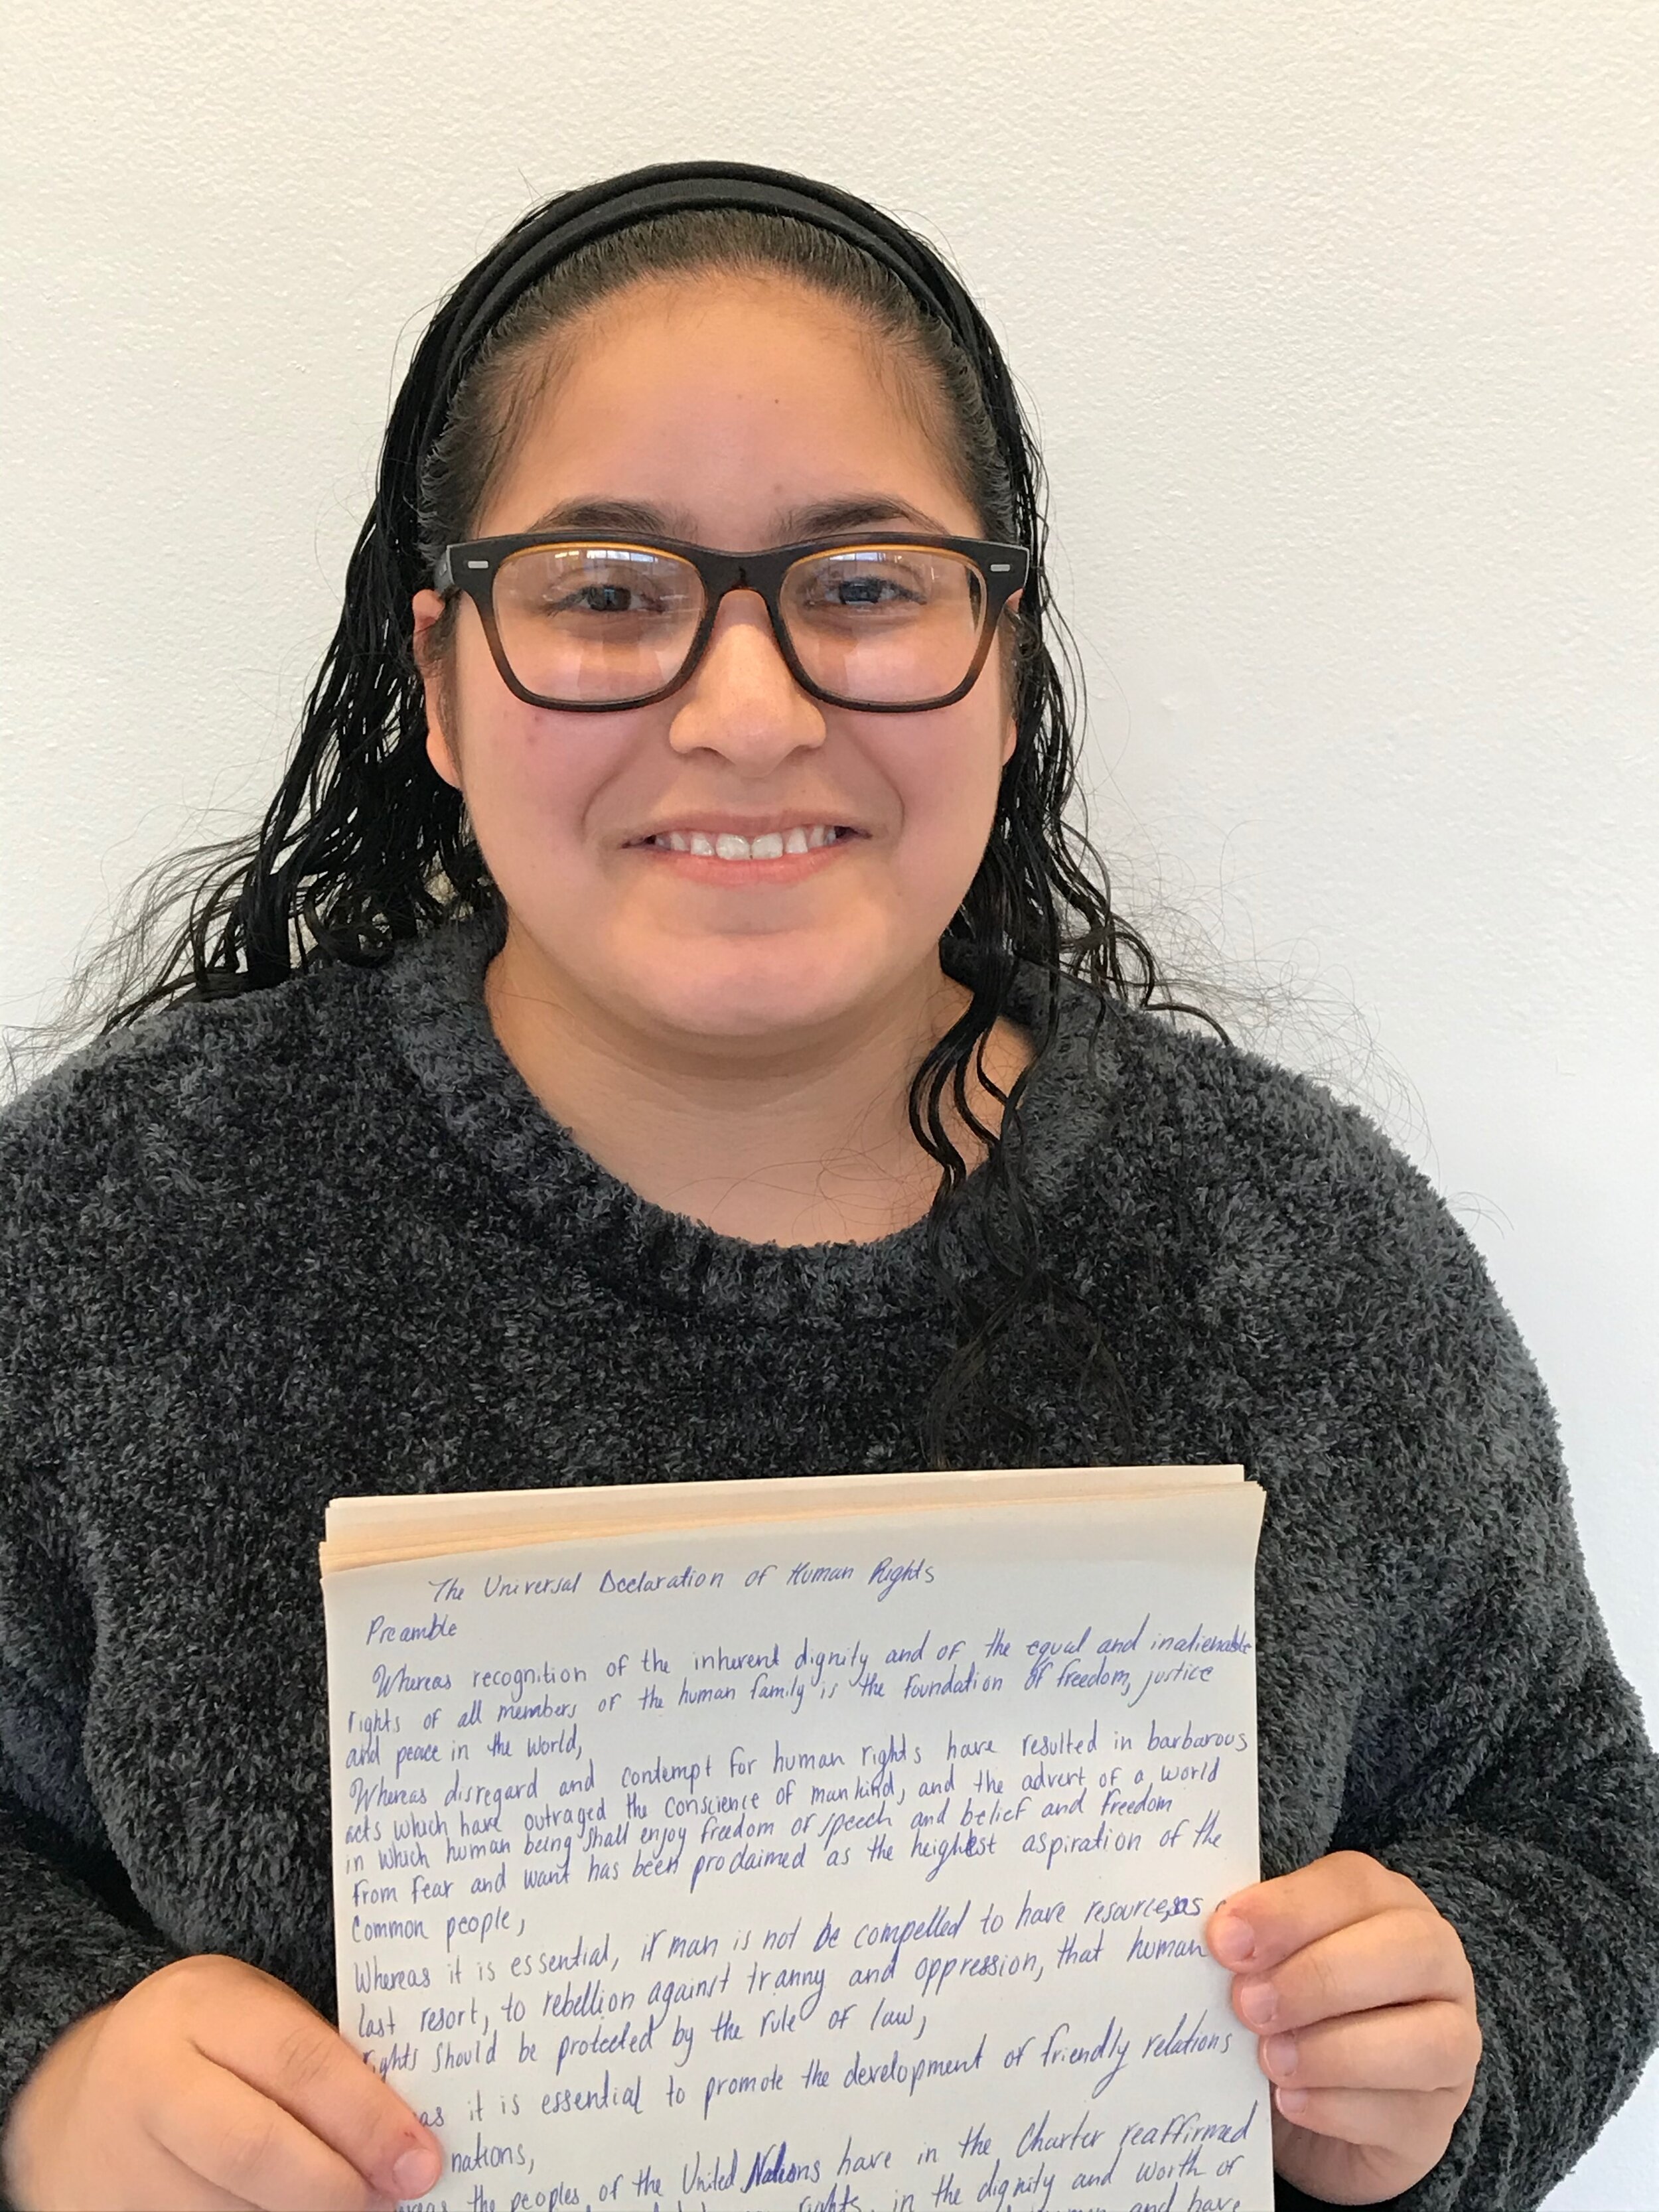 The Universal Declaration of Human Rights
Preamble
Whereas recognition of the inherent dignity and of the equal and inalienable
rights of all members of the human family is the foundation of freedom, justice
and peace in the world,
Whereas disregard and contempt for human rights have resulted in barbarous
acts which have outraged the conscience of mankind, and the advert of a world
in which human being shall enjoy freedom of speech and belief and freedom
from fear and want has been proclaimed as the heighest aspiration of the
Common people,
Whereas it is essential, if man is not be compelled to have resource, as
last resort, to rebellion against tranny and oppression, that human
rights should be protected by the rule of law,
as it is essential to promote the development of friendly relations
nations,
the peoples of the United Nations have in the Charter reaffirmed
rights, in the dignity and worth of
and have